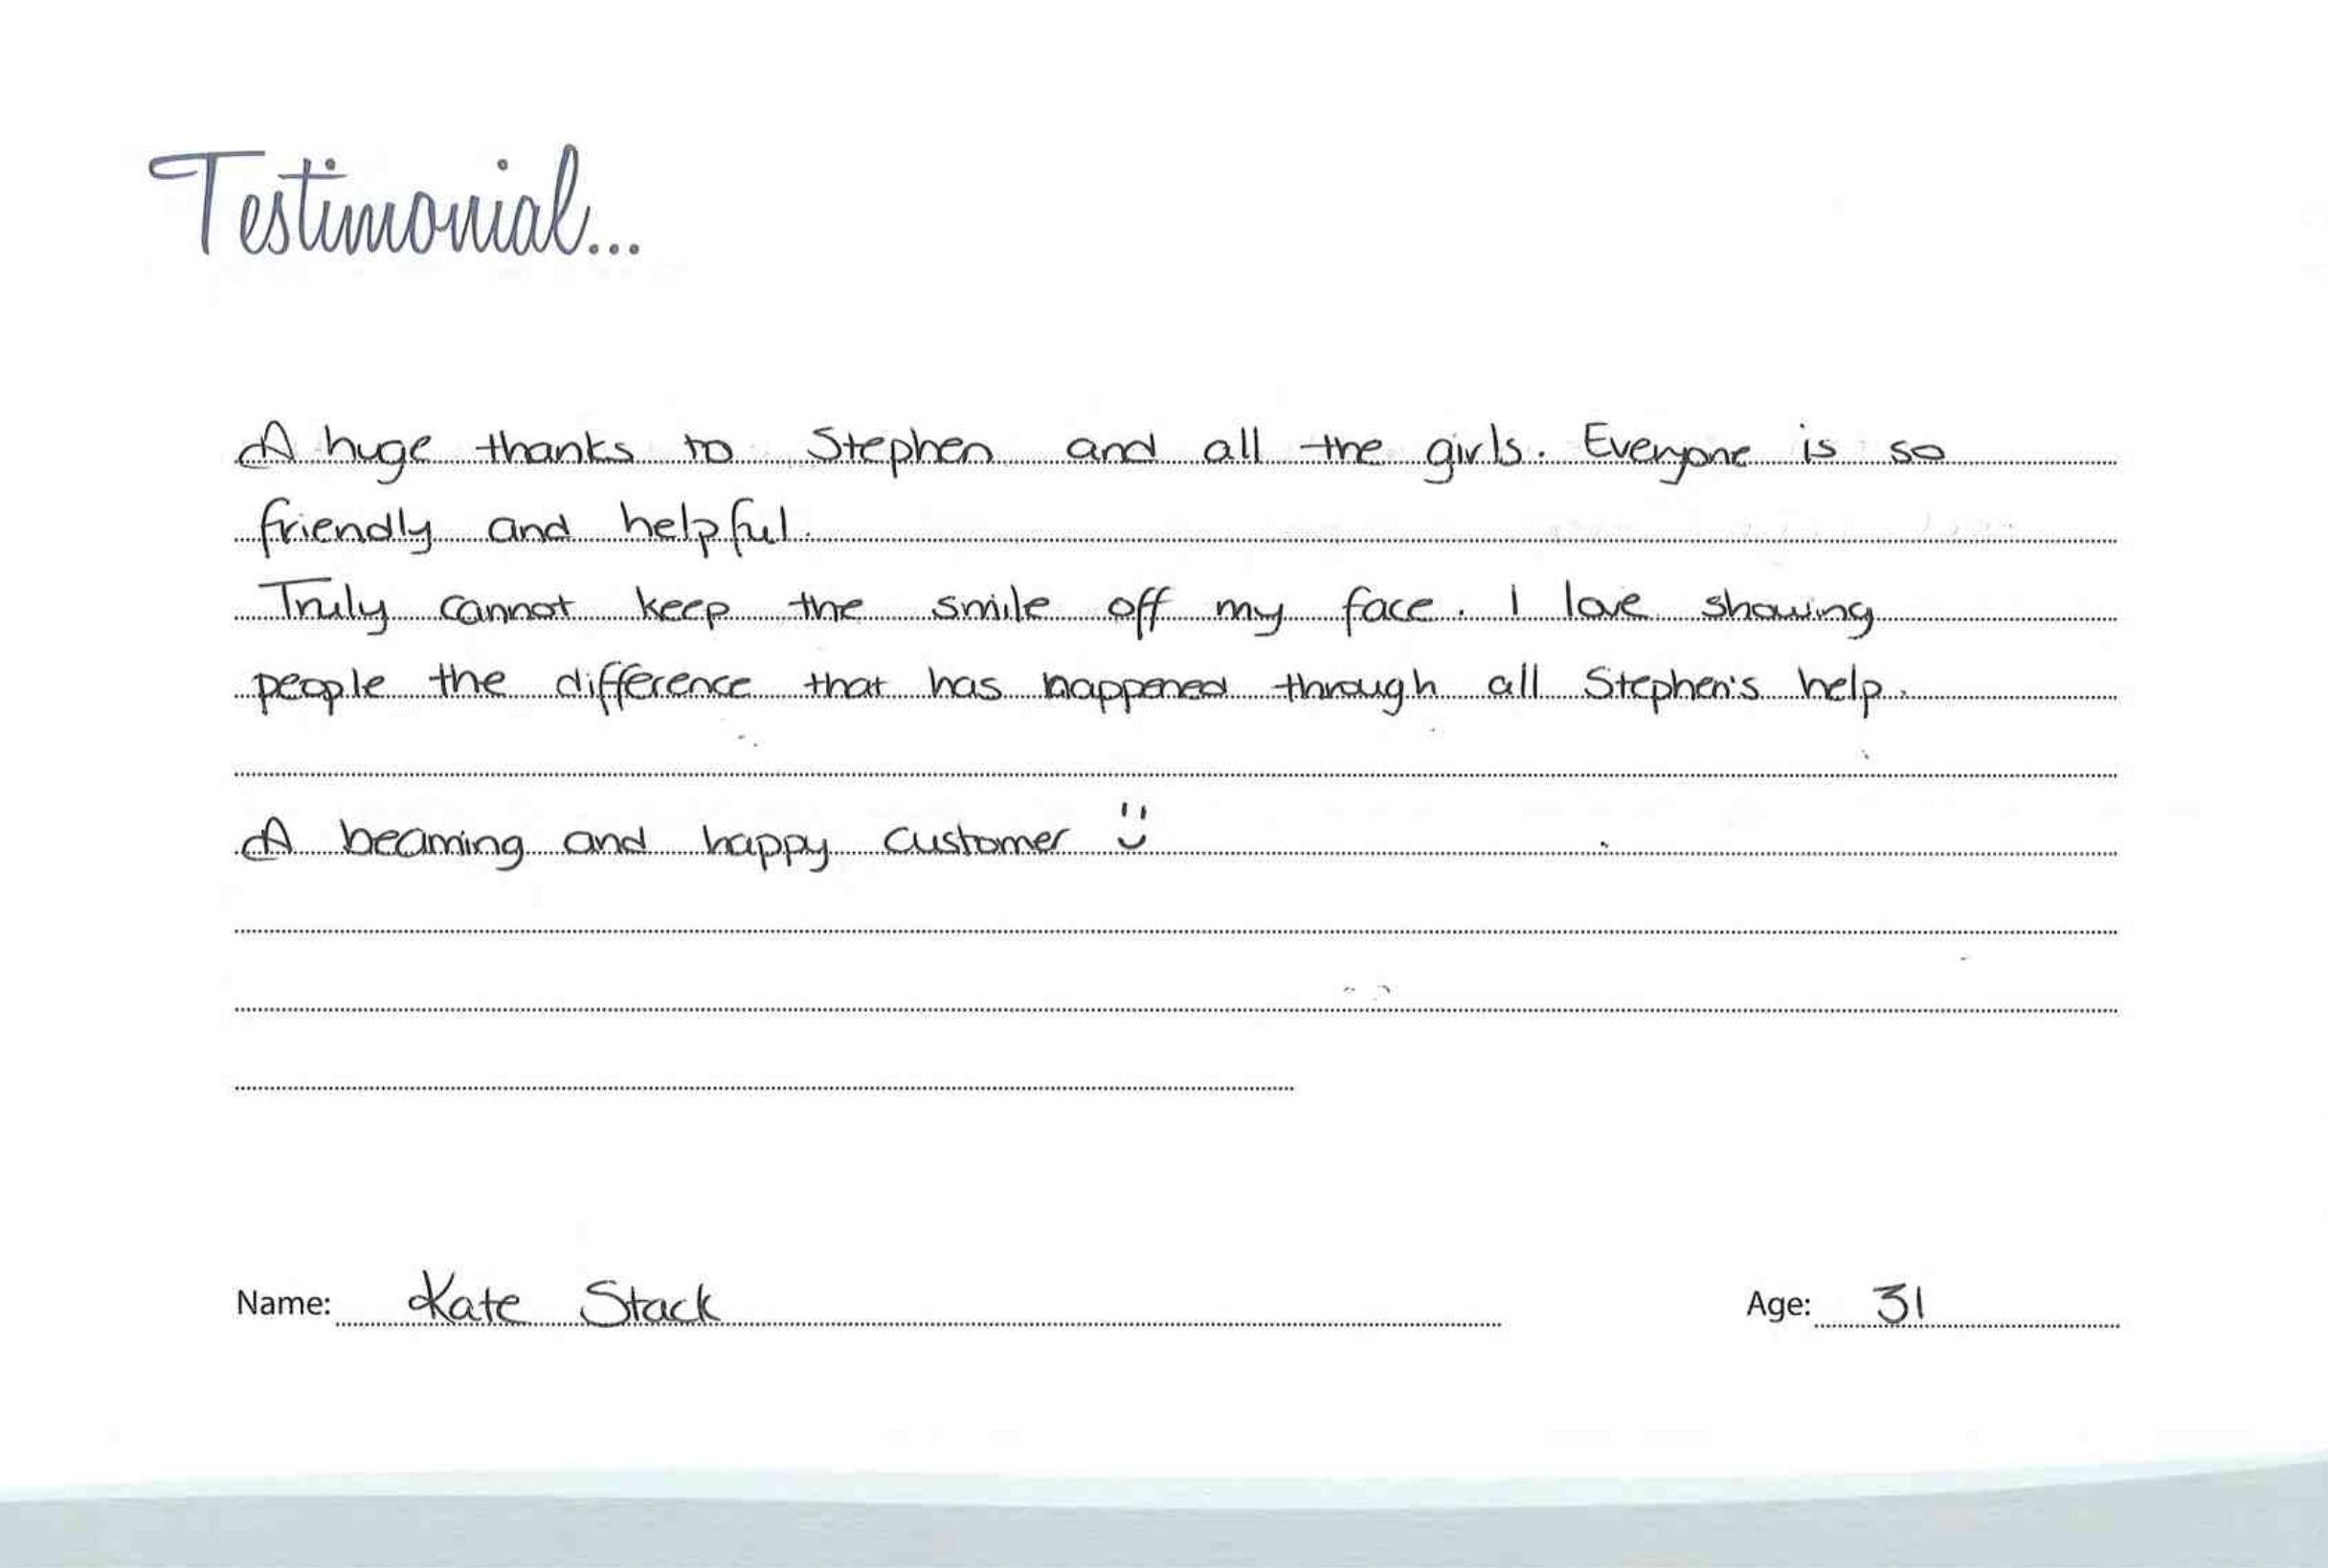 Testimonial...
A huge thanks to Stephen and all the girls. Everyone is so
friendly and helpful.
Truly cannot keep the smile off my face. I love showing
people the difference that has happened through all Stephen's help.
A beaming and happy customer
Name: Kate Stack
Age: 31